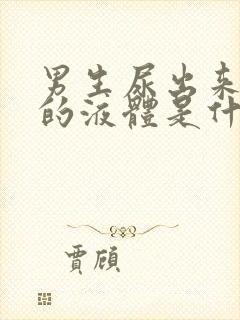 男生尿出来
的液體是什
賈頎